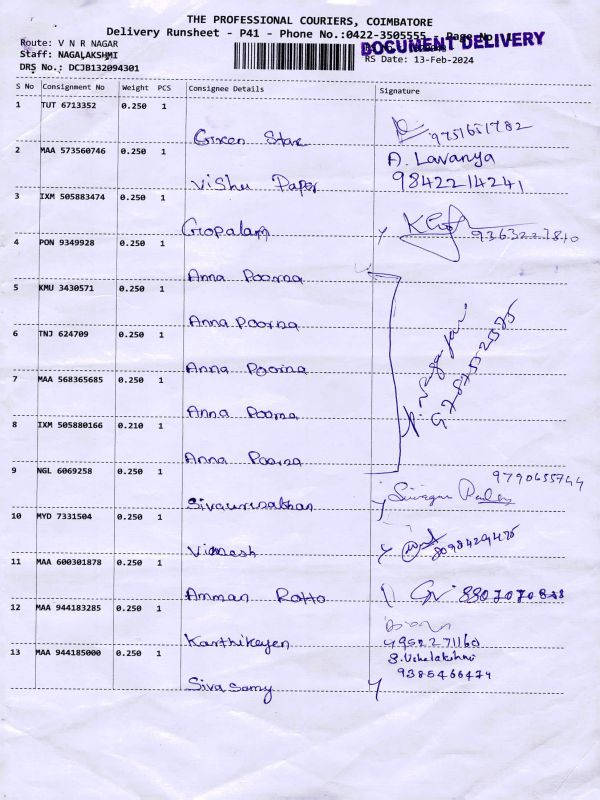 THE PROFESSIONAL COURIERS, COIMBATORE
Delivery Runsheet - P41 - Phone No.:0422-3505555 - Page No
DOCUMENT DELIVERY
Route: V N R NAGAR
Staff: NAGALAKSHMI
RS Date: 13-Feb-2024
DRS No.: DCJB132094301
S No Consignment No Weight PCS Consignee Details Signature
1 TUT 6713352 0.250 1 Green Star 9751651782
2 MAA 573560746 0.250 1 Vishu Paper A. Lavanya 9842214241
3 IXM 505883474 0.250 1 Gopalam
4 PON 9349928 0.250 1 Anna Poorna
5 KMU 3430571 0.250 1 Anna Poorna
6 TNJ 624709 0.250 1 Anna Poorna
7 MAA 568365685 0.250 1 Anna Poorna
8 IXM 505880166 0.210 1 Anna Poorna
9 NGL 6069258 0.250 1 9790655744
10 MYD 7331504 0.250 1 8098429475
11 MAA 600301878 0.250 1 Amman
12 MAA 944183285 0.250 1 Karthikeyen
13 MAA 944185000 0.250 1 Siva Samy 9385466474